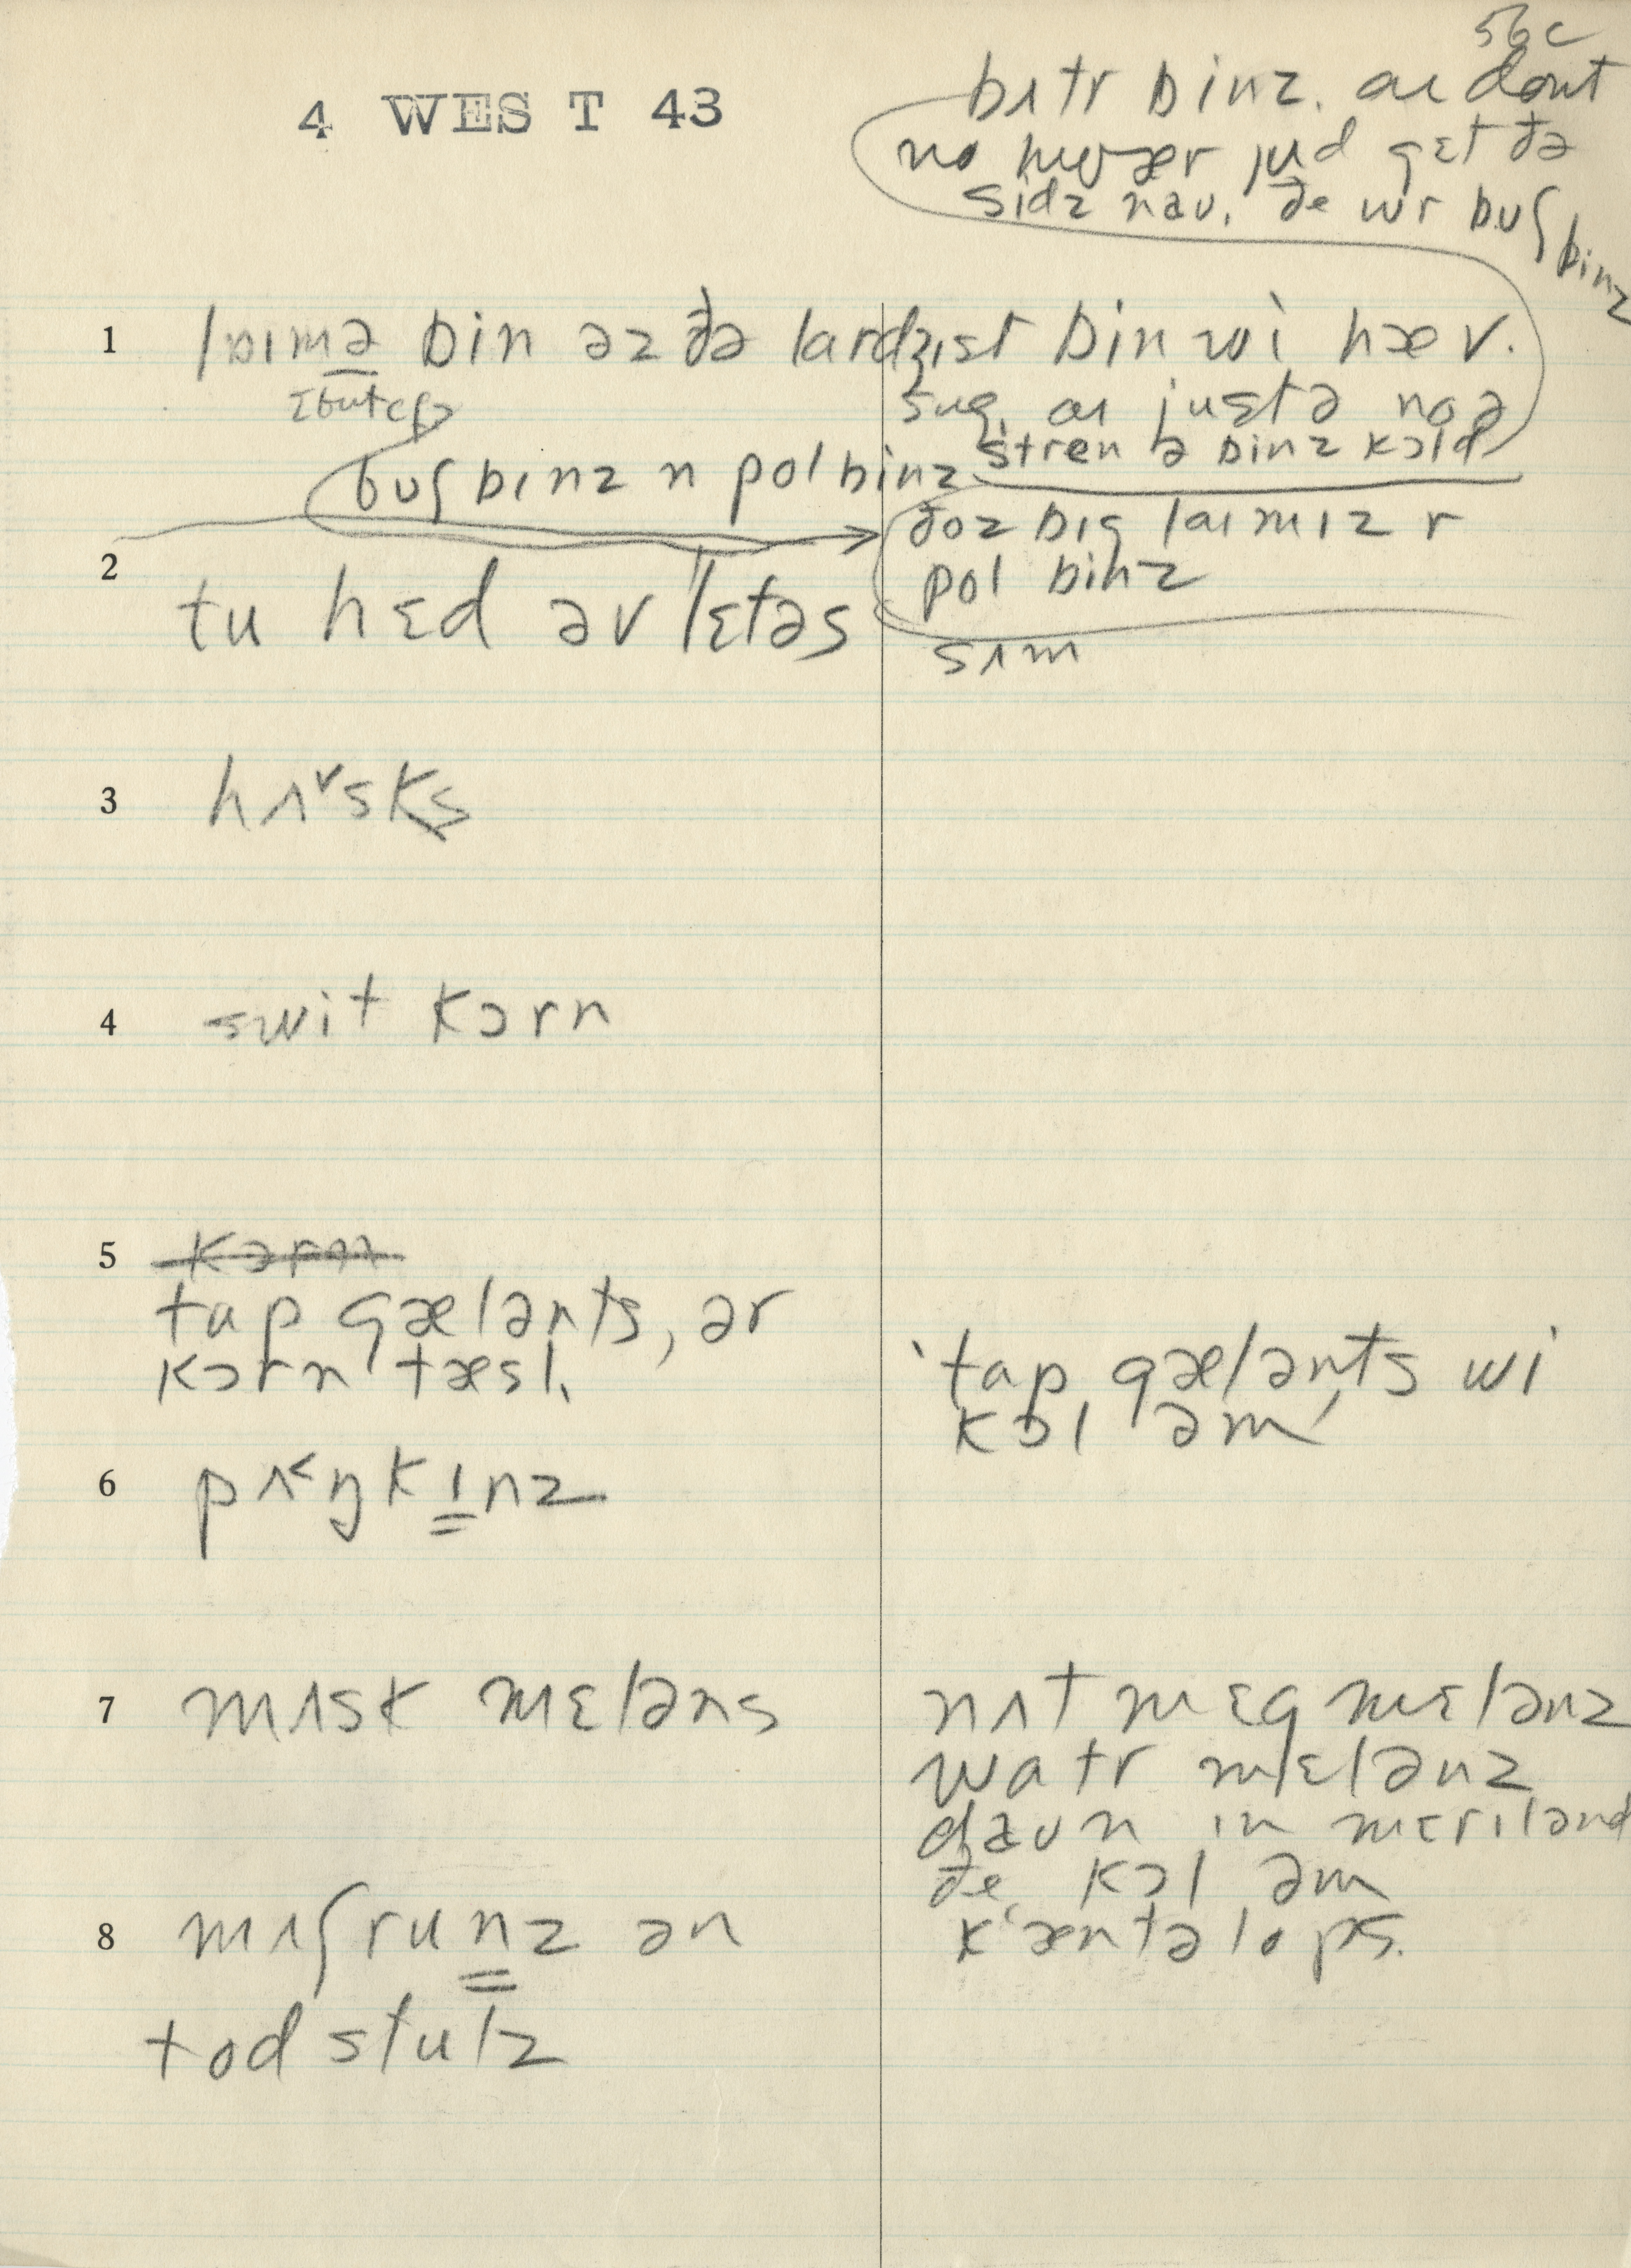 56c
4 WEST 43
bʌtr binz. aɪ dont
no hwær jud gɛt ðə
sidz naʊ. ðe wr bʊʃ binz
1 laɪmə bin əz ðə lardʒɪst bin wi hæv.
aɪ justə no ə
stren ə binz kɔld
bʊʃ binz n pol binz
ðoz bɪg laɪmɪz r
pol binz
2 tu hɛd əv lɛtəs
sʌm
3 hʌ˅sks
4 swit kɔrn
5 kɔrn
tap gælənts, ər
kɔrn tæsl.
'tap gælənts wi
kɔl əm'
6 pʌ˂ŋkɪnz
7 mʌsk mɛləns
nʌtmɛg mɛlənz
watr mɛlənz
dæʊn in mɛrɪlənd
ðe kɔl əm
k‘æntəlops.
8 mʌʃrunz ən
todstulz